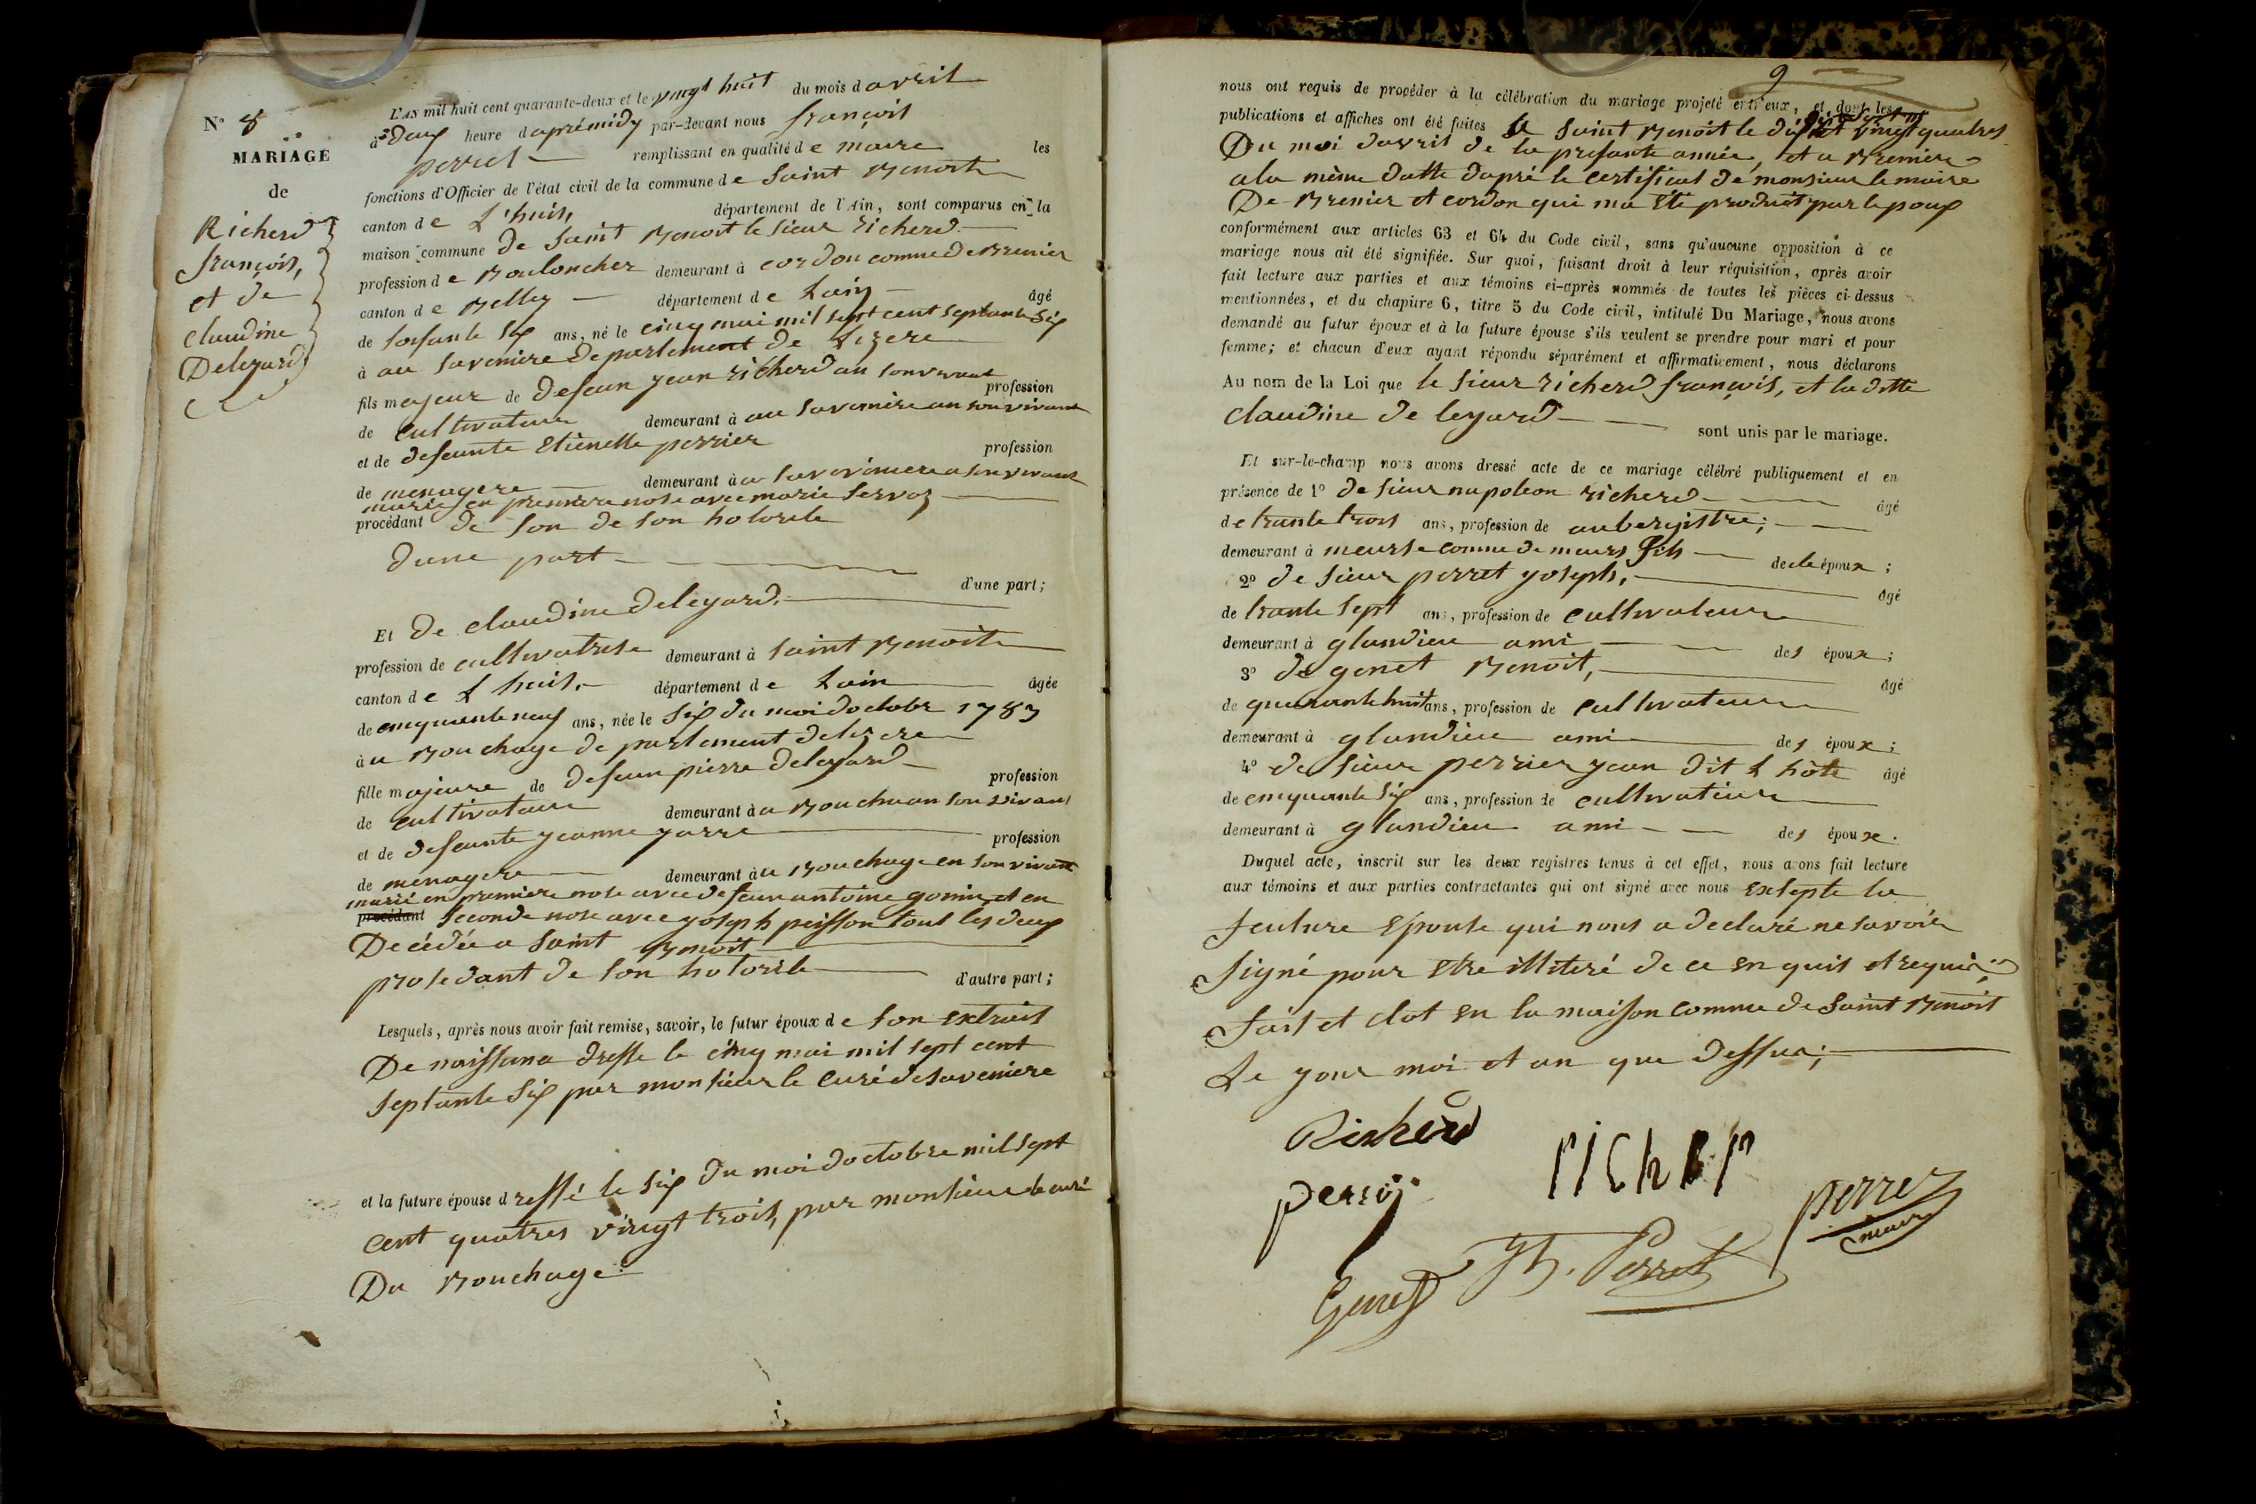 N° 8
MARIAGE
de
Richerd
françois,
et de
claudine
Deleyard
L'AN mil huit cent quarante-deux et le vingt huit du mois d avril
à deux heure d aprémidy par-devant nous françois
perret remplissant en qualité d e maire les
fonctions d'Officier de l'état civil de la commune d e Saint Benoit
canton d e L'huis, département de l'Ain, sont comparus en la
maison commune de Saint Benoit le sieur richerd
profession d e Bouloncher demeurant à cordon comune de Brenier
canton d e Belley département d e Lain âgé
de soisante six ans, né le cinq mai mil sept cent septante six
à au savenière departement de Lizere
fils majeur de defeun jean richerd an son vivant profession
de cultivateur demeurant à au savenière an son vivant
et de defeunte Etienette perrier profession
de menagere demeurant à a savenniere a son vivant
mariés en premiere nose avec marie Servoz
procédant de son de son hotorite
dune part d'une part;
Et de claudine deleyard.
profession de cultivatrise demeurant à saint Benoit
canton d e L huis. département d e Lain âgée
de cinquante neuf ans, née le six du moi doctobre 1783
à u Bouchage departement delizere
fille majeure de defeun pierre deleyard profession
de cultivateur demeurant à a Bouchuan son vivant
et de defeunte jeanne yarre profession
de menagere demeurant à u Bouchage en son vivant
marié en premiere nose avec defeun antoine gonin et en
procédant seconde nose avec yoseph peisson tout les deux
Decédée a saint Benoit
prosedant de son hotorite d'autre part;
Lesquels, après nous avoir fait remise, savoir, le futur époux d e son extrait
De naissance dresse le cinq mai mil sept cent
septante six par monsieur le curé de savenière
et la future épouse d ressé le six du moi doctobre mil sept
cent quatres vingt trois, par monsieur le curé
Du Bouchage
9
nous ont requis de procéder à la célébration du mariage projeté entr'eux, et dont les
publications et affiches ont été faites a saint Benoit le et vingt quatres
Du moi davril de la presante année, et a Breniere
a la mème datte dapré le certificat de monsieur le maire
De Brenier et cordon qui ma été produit par lepoux
conformément aux articles 63 et 64 du Code civil, sans qu'aucune opposition à ce
mariage nous ait été signifiée. Sur quoi, faisant droit à leur réquisition, après avoir
fait lecture aux parties et aux témoins ci-après nommés de toutes les pièces ci-dessus
mentionnées, et du chapitre 6, titre 5 du Code civil, intitulé Du Mariage, nous avons
demandé au futur époux et à la future épouse s'ils veulent se prendre pour mari et pour
femme; et chacun d'eux ayant répondu séparément et affirmativement, nous déclarons
Au nom de la Loi que le sieur richerd françois, et la ditte
claudine de leyard sont unis par le mariage.
Et sur-le-champ nous avons dressé acte de ce mariage célébré publiquement et en
présence de 1° de sieur napoleon richerd âgé
de trante trois ans, profession de aubergistre;
demeurant à meurs e comune de meurs fils de le époux;
2° de sieur perret yoseph, âgé
de trante sept ans, profession de cultivateur
demeurant à glandieu ami des époux;
3° de genet Benoit, âgé
de quarante huit ans, profession de cultivateur
demeurant à glandieu ami des époux;
4° de sieur perrier yean dit L hôte âgé
de cinquante six ans, profession de cultivateur
demeurant à glandieu ami des époux.
Duquel acte, inscrit sur les deux registres tenus à cet effet, nous avons fait lecture
aux témoins et aux parties contractantes qui ont signé avec nous exsepte la
feuture Epouse qui nous a declaré ne savoir
signé pour etre illiteré de ce en quis et requis
fait et clot en la maison comune de saint Benoit
Le your moi et an que dessus;
Richerd
richer
perrier
perret
maire
Jh. Perret
Genet